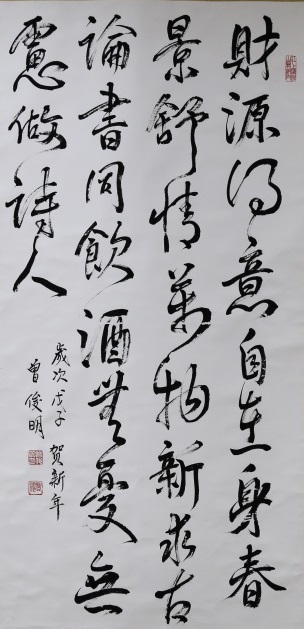 財源得意自在身春
景舒情萬物新求古
論書同飲酒無憂無
慮做詩人
歲次戊子賀新年
曾俊明